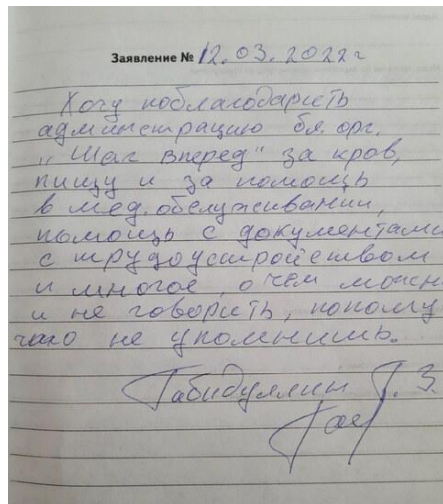 Заявление № 12.03.2022 г
Хочу поблагодарить
администрацию бл. орг.
„Шаг вперед" за кров,
пищу и за помощь
в мед. обслуживании,
помощь с документами
с трудоустройством
и многое, о чем можн
и не говорить, потому
чего не упомнишь.
Габидуллин Г. З.